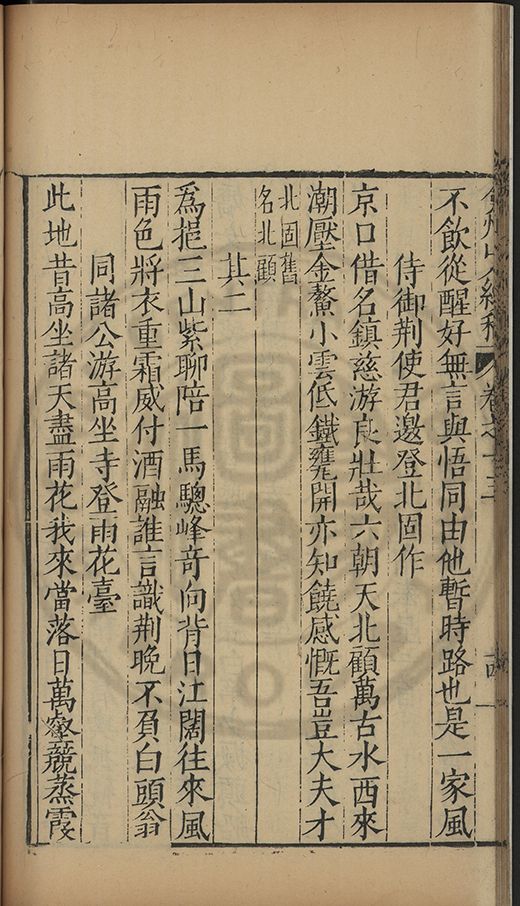 弇州山人續稿 卷之十三
不飲從醒好無言與悟同由他暫時路也是一家風
侍御荆使君邀登北固作
京口借名鎮慈游良壯哉六朝天北顧萬古水西來
潮壓金鰲小雲低鐵甕開亦知饒感慨吾豈大夫才
北固舊
名北顧
其二
爲挹三山紫聊陪一馬驄峰奇向背日江闊往來風
雨色將衣重霜威付酒融誰言識荆晚不負白頭翁
同諸公游高坐寺登雨花臺
此地昔高坐諸天盡雨花我來當落日萬壑競蒸霞